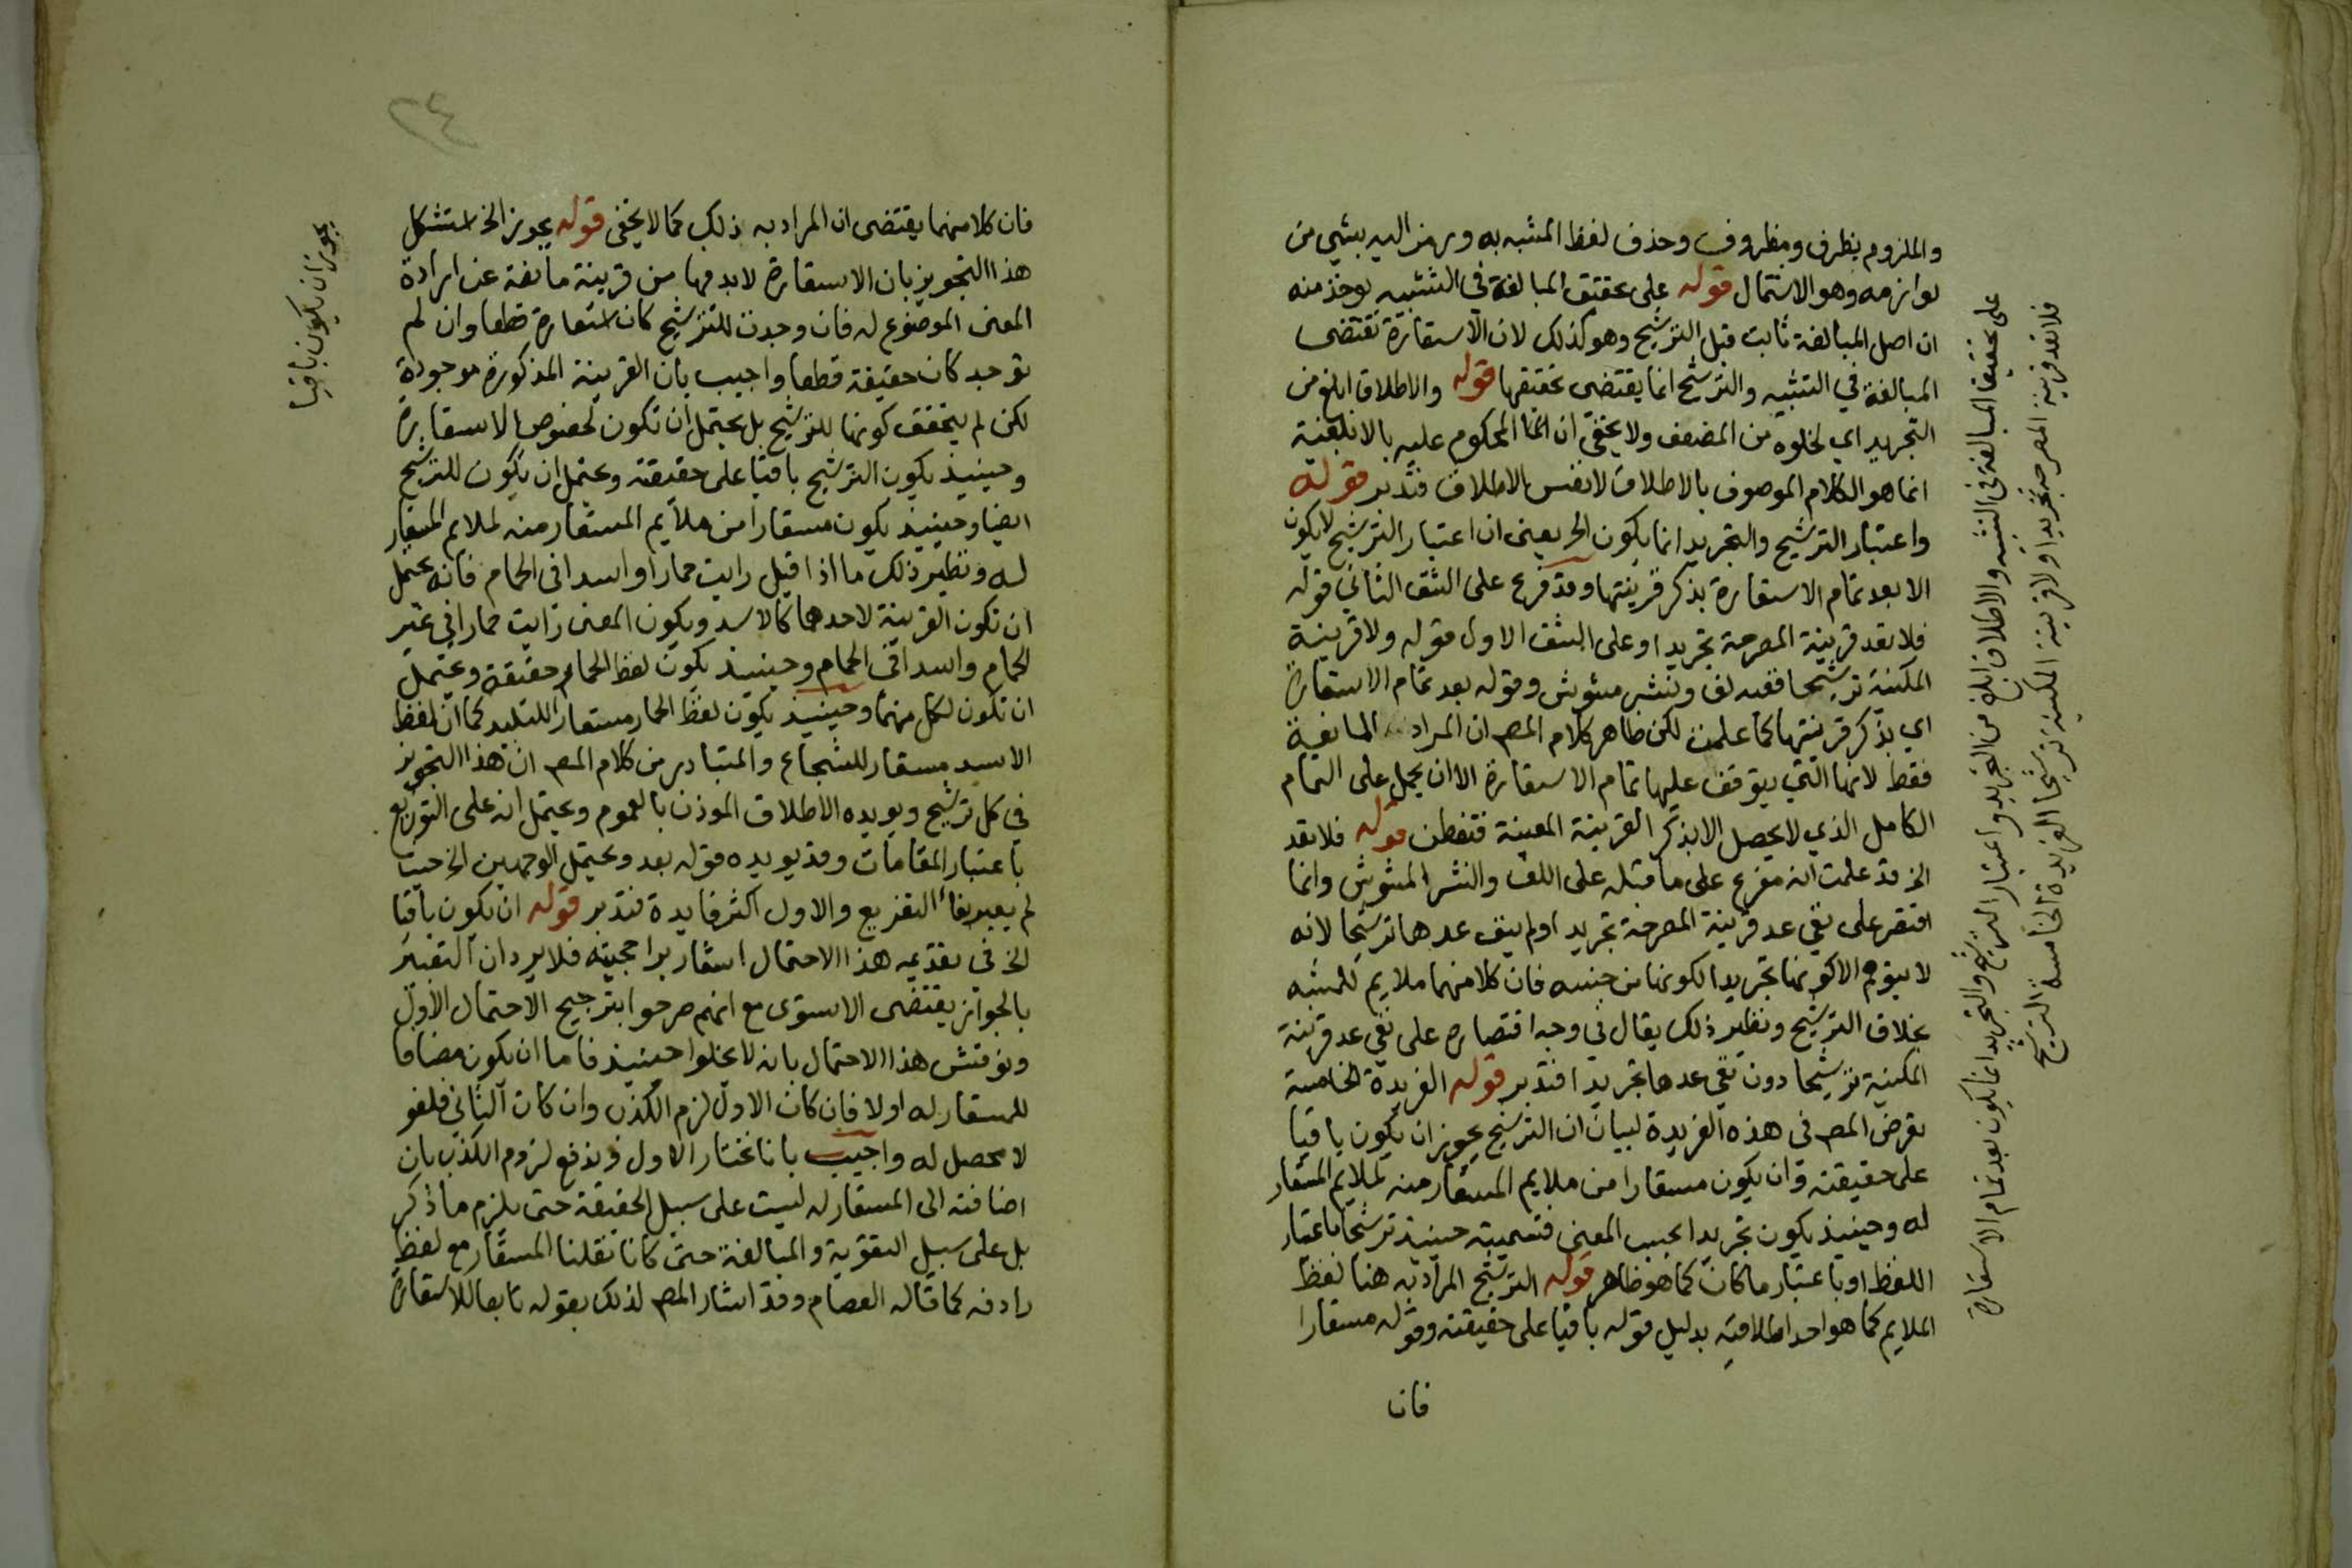 والملزوم بظرف ومظروف وحذف لفظ المشبه به ورمز اليه بشي من
لوازمه وهو الاشتمال قوله على تحقق المبالغة في التشبيه يوخذ منه
ان اصل المبالغة ثابت قبل الترشيح وهو كذلك لان الاستعارة تقتضى
المبالغة في التشبيه والترشيح انما يقتضى تحققها قوله والاطلاق ابلغ من
التجريد اي لخلوه من المضعف ولا يخفى ان المحكوم عليه بالابلغية
انما هو الكلام الموصوف بالاطلاق لا نفس الاطلاق فتدبر قوله
واعتبار الترشيح والتجريد انما يكون الخ يعنى ان اعتبار الترشيح لا يكون
الا بعد تمام الاستعارة بذكر قرينتها وقد فرع على الشق الثاني قوله
فلا تعد قرينة المصرحة تجريدا وعلى الشق الاول قوله ولا قرينة
المكنية ترشيحا ففيه لف ونشر مشوش وقوله بعد تمام الاستعارة
اي بذكر قرينتها كما علمت لكن ظاهر كلام المص ان المراد المانعية
فقط لانها التي يتوقف عليها تمام الاستعارة الا ان يحمل على التمام
الكامل الذي لا يحصل الا بذكر القرينة المعينة فتفطن قوله فلا تعد
الخ قد علمت انه مفرع على ما قبله على اللف والنشر المشوش وانما
اقتصر على نفي عد قرينة المصرحة تجريدا ولم ينف عدها ترشيحا لانه
لا يتوهم الا كونها تجريدا لكونها من جنسه فان كلا منهما ملايم للمشبه
بخلاف الترشيح ونظير ذلك يقال في وجه اقتصاره على نفي عد قرينة
المكنية ترشيحا دون نفي عدها تجريدا فتدبر قوله الفريدة الخامسة
تعرض المص في هذه الفريدة لبيان ان الترشيح يجوز ان يكون باقيا
على حقيقته وان يكون مستعارا من ملايم المستعار منه لملايم المستعار
له وحينيذ يكون تجريدا بحسب المعنى فتسميته حينيذ ترشيحا باعتبار
اللفظ او باعتبار ما كان كما هو ظاهر قوله الترشيح المراد به هنا لفظ
الملايم كما هو احد اطلاقيه بدليل قوله باقيا على حقيقته وقوله مستعارا
فان
على تحقيق المبالغة في التشبيه والاطلاق ابلغ من التجريد واعتبار الترشيح والتجريد انما يكون بعد تمام الاستعارة
فلا تعد قرينة المصرحة تجريدا ولا قرينة المكنية ترشيحا الفريدة الخامسة الترشيح
٢٤
فان كلا منهما يقتضى ان المراد به ذلك كما لا يخفى قوله يجوز الخ استشكل
هذا التجويز بان الاستعارة لا بد فيها من قرينة مانعة عن ارادة
المعنى الموضوع له فان وجدت للترشيح كان استعارة قطعا وان لم
توجد كان حقيقة قطعا واجيب بان القرينة المذكورة موجودة
لكن لم يتحقق كونها للترشيح بل يحتمل ان تكون لخصوص الاستعارة
وحينيذ يكون الترشيح باقيا على حقيقته ويحتمل ان يكون للترشيح
ايضا وحينيذ يكون مستعارا من ملايم المستعار منه لملايم المستعار
له ونظير ذلك ما اذا قيل رايت حمارا واسدا في الحمام فانه يحتمل
ان تكون القرينة لاحدهما كالاسد ويكون المعنى رايت حمارا في غير
الحمام واسدا في الحمام وحينيذ يكون لفظ الحمار حقيقة ويحتمل
ان تكون لكل منهما وحينيذ يكون لفظ الحمار مستعارا للبليد كما ان لفظ
الاسد مستعار للشجاع والمتبادر من كلام المص ان هذا التجويز
في كل ترشيح ويويده الاطلاق الموذن بالعموم ويحتمل انه على التوزيع
باعتبار المقامات وقد يويده قوله بعد ويحتمل الوجهين الخ حيث
لم يعبر بفاء التفريع والاول اكثر فايدة فتدبر قوله ان يكون باقيا
الخ في تقديمه هذا الاحتمال اشعار براجحيته فلا يرد ان التعبير
بالجواز يقتضى الاستوى مع انهم صرحوا بترجيح الاحتمال الاول
ونوقش هذا الاحتمال بانه لا يخلوا حينيذ فاما ان يكون مضافا
للمستعار له اولا فان كان الاول لزم الكذب وان كان الثاني فلغو
لا محصل له واجيب بانا نختار الاول وندفع لزوم الكذب بان
اضافته الى المستعار له ليست على سبيل الحقيقة حتى يلزم ما ذكر
بل على سبيل التقوية والمبالغة حتى كانا نقلنا المستعار مع لفظ
رادفه كما قاله العصام وقد اشار المص لذلك بقوله تابعا للاستعارة
يجوز ان يكون باقيا